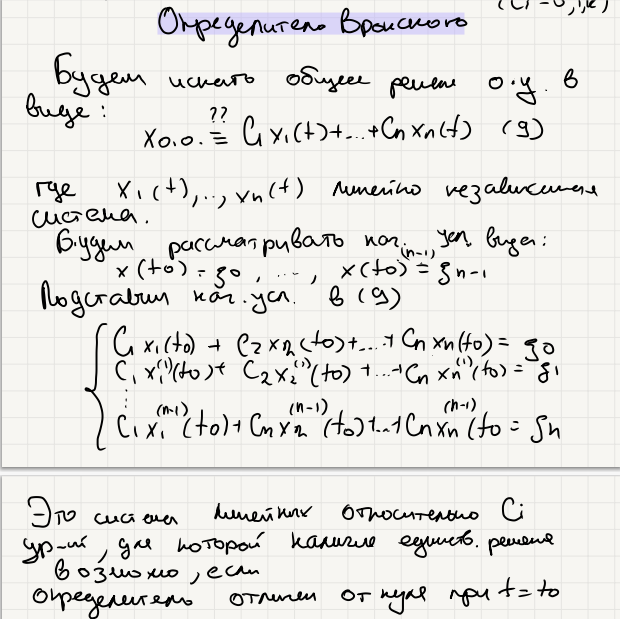 (Ci=0,1,n)
Определитель Вронского
Будем искать общее решен о.у. в
виде:
??
Xо.о. ≡ C1 x1(t)+...+Cn xn(t) (9)
где x1(t),..,xn(t) линейно независимая
система.
Будем рассматривать нач. усл. вида:
x(t0) = ξ0, ..., x(t0)^(n-1) = ξn-1
Подставим нач. усл. в (9)
C1 x1(t0) + C2 x2(t0)+...+ Cn xn(t0) = ξ0
C1 x1^(1)(t0)+ C2 x2^(1)(t0)+...+Cn xn^(1)(t0) = ξ1
⋮
C1 x1^(n-1)(t0)+ Cn x2^(n-1)(t0)+..+Cn xn^(n-1)(t0 = ξn
Это система линейных относительно Ci
ур-ий, для которой наличие единств. решен
возможно, если
определитель отличен от нуля при t=t0